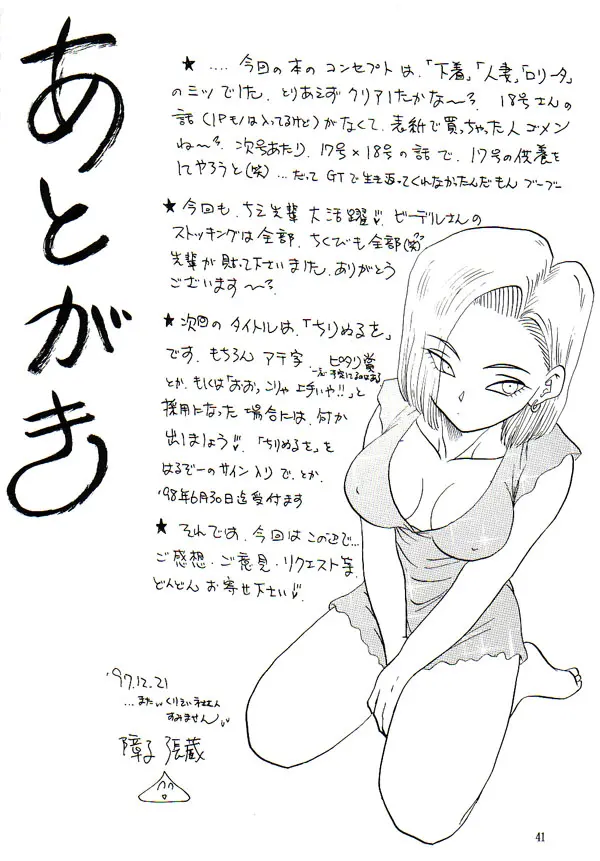 あとがき
★ .... 今回の本のコンセプトは、「下着」「人妻」「ロリータ」
のミツでした。とりあえずクリアしたかな〜?. 18号さんの
話(1Pモノは入ってるけど)がなくて、表紙で買っちゃった人ゴメン
ね〜?. 次号あたり、17号×18号の話で、17号の供養を
してやろうと(笑) ... だって GTで生き返ってくれなかったんだもん ブーブー
★今回も、ちえ先輩 大活躍. ビーデルさんの
ストッキングは全部、ちくびも全部(笑)
先輩が貼って下さいました。ありがとう
ございます〜?.
★次回のタイトルは、「ちりぬるを」
です。もちろん アテ字。 ピタリ賞
とか、もしくは「おおっこりゃ上手いや!!」と
採用になった場合には、何か
出しましょう. 「ちりぬるを」を
はるぞーのサイン入りで、とか.
'98年6月30日迄受付ます
★ それでは、今回はこの辺で...
ご感想・ご意見・リクエスト等、
どんどん お寄せ下さい.
'97.12.21
すみません
障子 張蔵
41